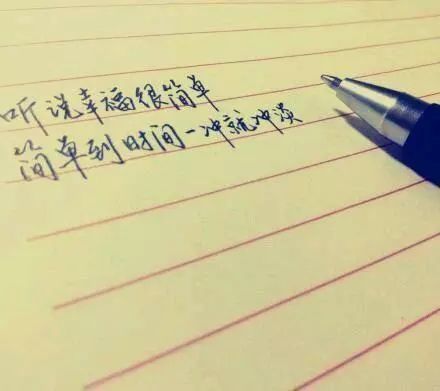 听说幸福很简单
简单到时间一冲就冲淡